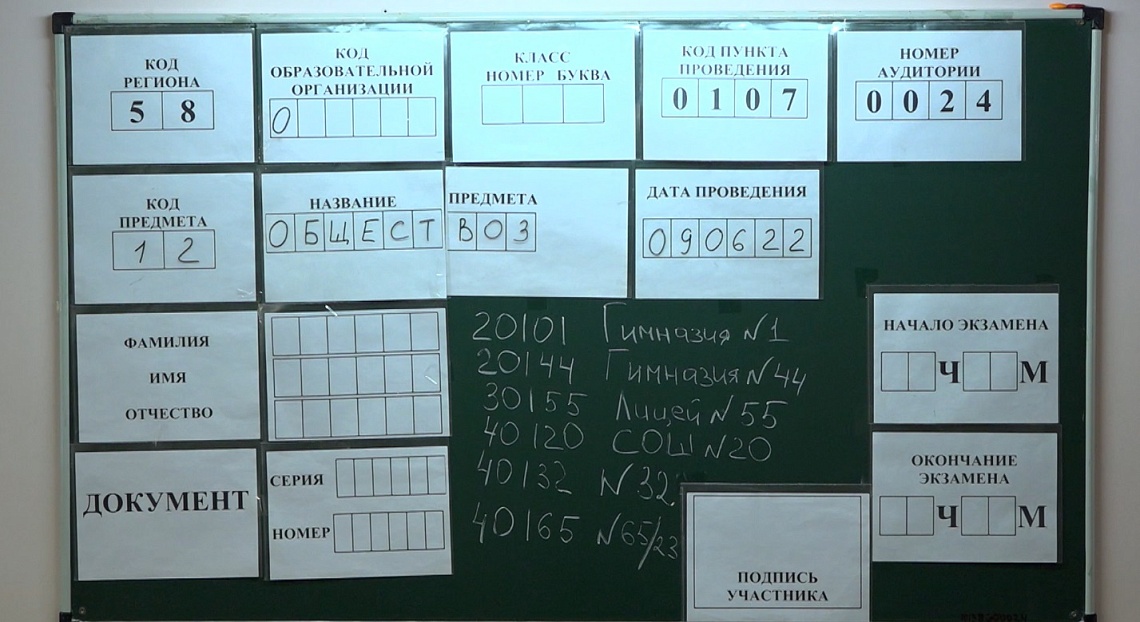 КОД
РЕГИОНА
5 8
КОД
ОБРАЗОВАТЕЛЬНОЙ
ОРГАНИЗАЦИИ
0
КЛАСС
НОМЕР БУКВА
КОД ПУНКТА
ПРОВЕДЕНИЯ
0 1 0 7
НОМЕР
АУДИТОРИИ
0 0 2 4
КОД
ПРЕДМЕТА
1 2
НАЗВАНИЕ ПРЕДМЕТА
ОБЩЕСТВОЗ
ДАТА ПРОВЕДЕНИЯ
0 9 0 6 2 2
ФАМИЛИЯ
ИМЯ
ОТЧЕСТВО
20101 Гимназия №1
20144 Гимназия №44
30155 Лицей №55
40120 СОШ №20
40132 №32
40165 №65/23
НАЧАЛО ЭКЗАМЕНА
Ч М
ДОКУМЕНТ
СЕРИЯ
НОМЕР
ОКОНЧАНИЕ
ЭКЗАМЕНА
Ч М
ПОДПИСЬ
УЧАСТНИКА